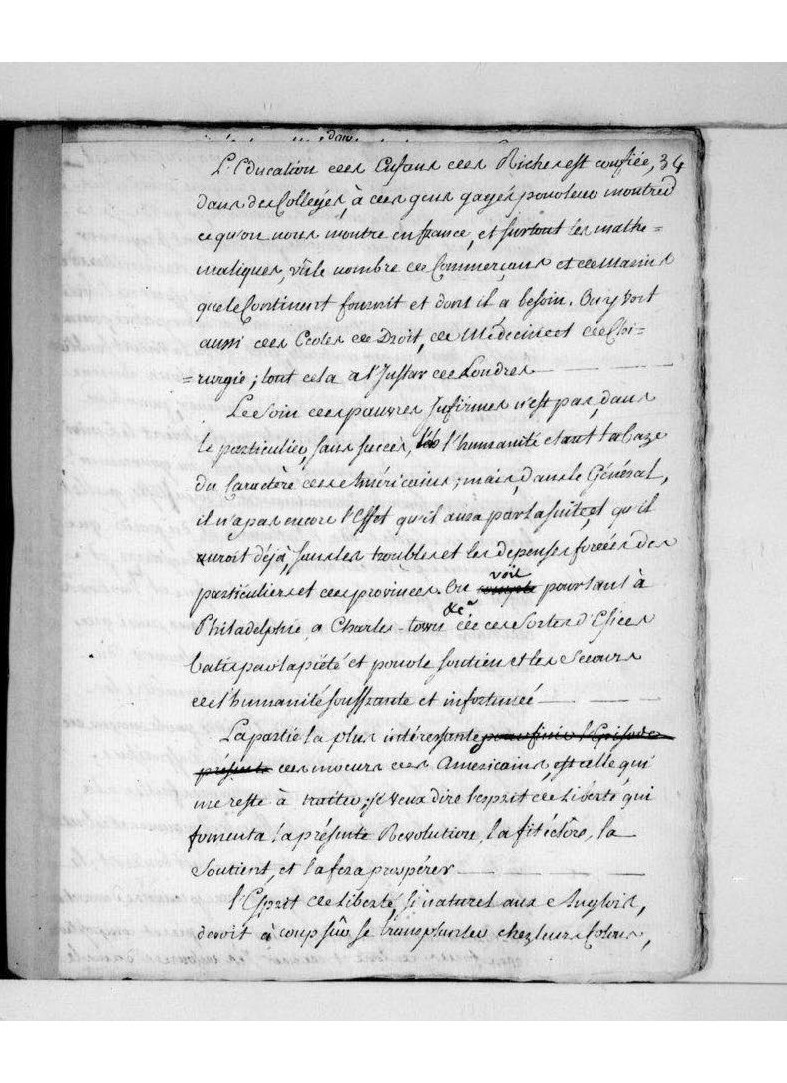 34
L'Education des Enfans des Riches est confiée,
dans des Colleges, à des gens gagés pour leur montrer
ce qu'on nous montre en france, et surtout les mathe=
matiques, vû le nombre de Commerçans et de Marins
que le Continent fournit et dont il a besoin. On y voit
aussi des Ecoles de Droit, de Médecine et de Chi=
=rurgie; tout cela à l'Instar de Londres
Le Soin des pauvres Infirmes n'est pas, dans
le particulier, sans succès, l'humanité etant la baze
du Caractère des Américains; mais, dans le Général,
il n'a pas encore l'Effet qu'il aura par la suite, et qu'il
auroit déjà, sans les troubles et les depenses forcées des
particuliers et des provinces. On compte voit pourtant à
Philadelphie, a Charles-town &c.a de ces sortes d'Edifices
batis par la piété et pour le soutien et les Secours
de l'humanité souffrante et infortunée
La partie la plus intéressante pour finir l'Episode
présente des moeurs des Americains, est celle qui
me reste à traiter; je veux dire l'esprit de Liberté qui
fomenta la présente Revolution, la fit éclore, la
Soutient, et la fera prospérer
l'Esprit de Liberté si naturel aux Anglois,
devoit à coup sûr se transplanter chez leurs Colons,